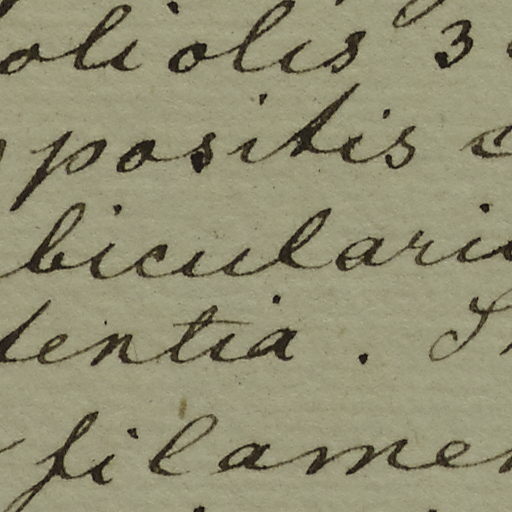 oliolis 3
positis
biculari
dentia.
filamen